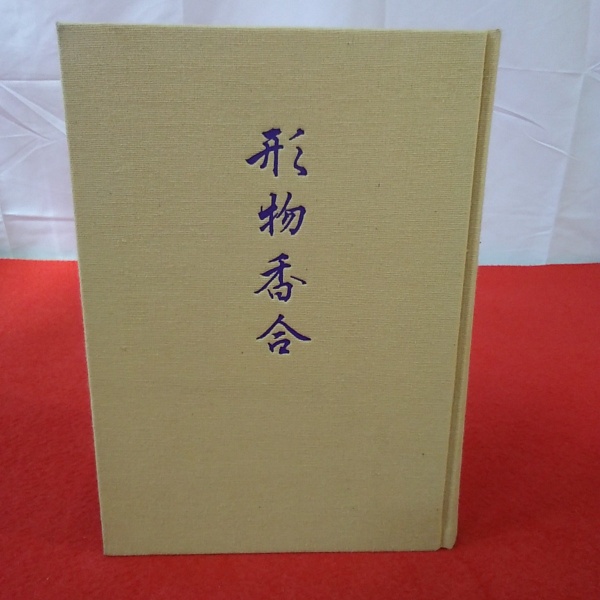 形物香合